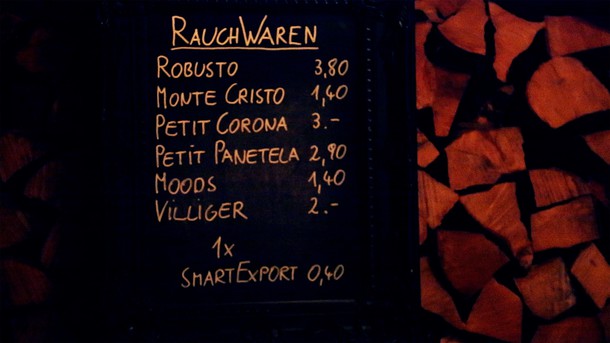 RAUCHWAREN
ROBUSTO 3,80
MONTE CRISTO 1,40
PETIT CORONA 3.-
PETIT PANETELA 2,90
MOODS 1,40
VILLIGER 2.-
1x
SMARTEXPORT 0,40